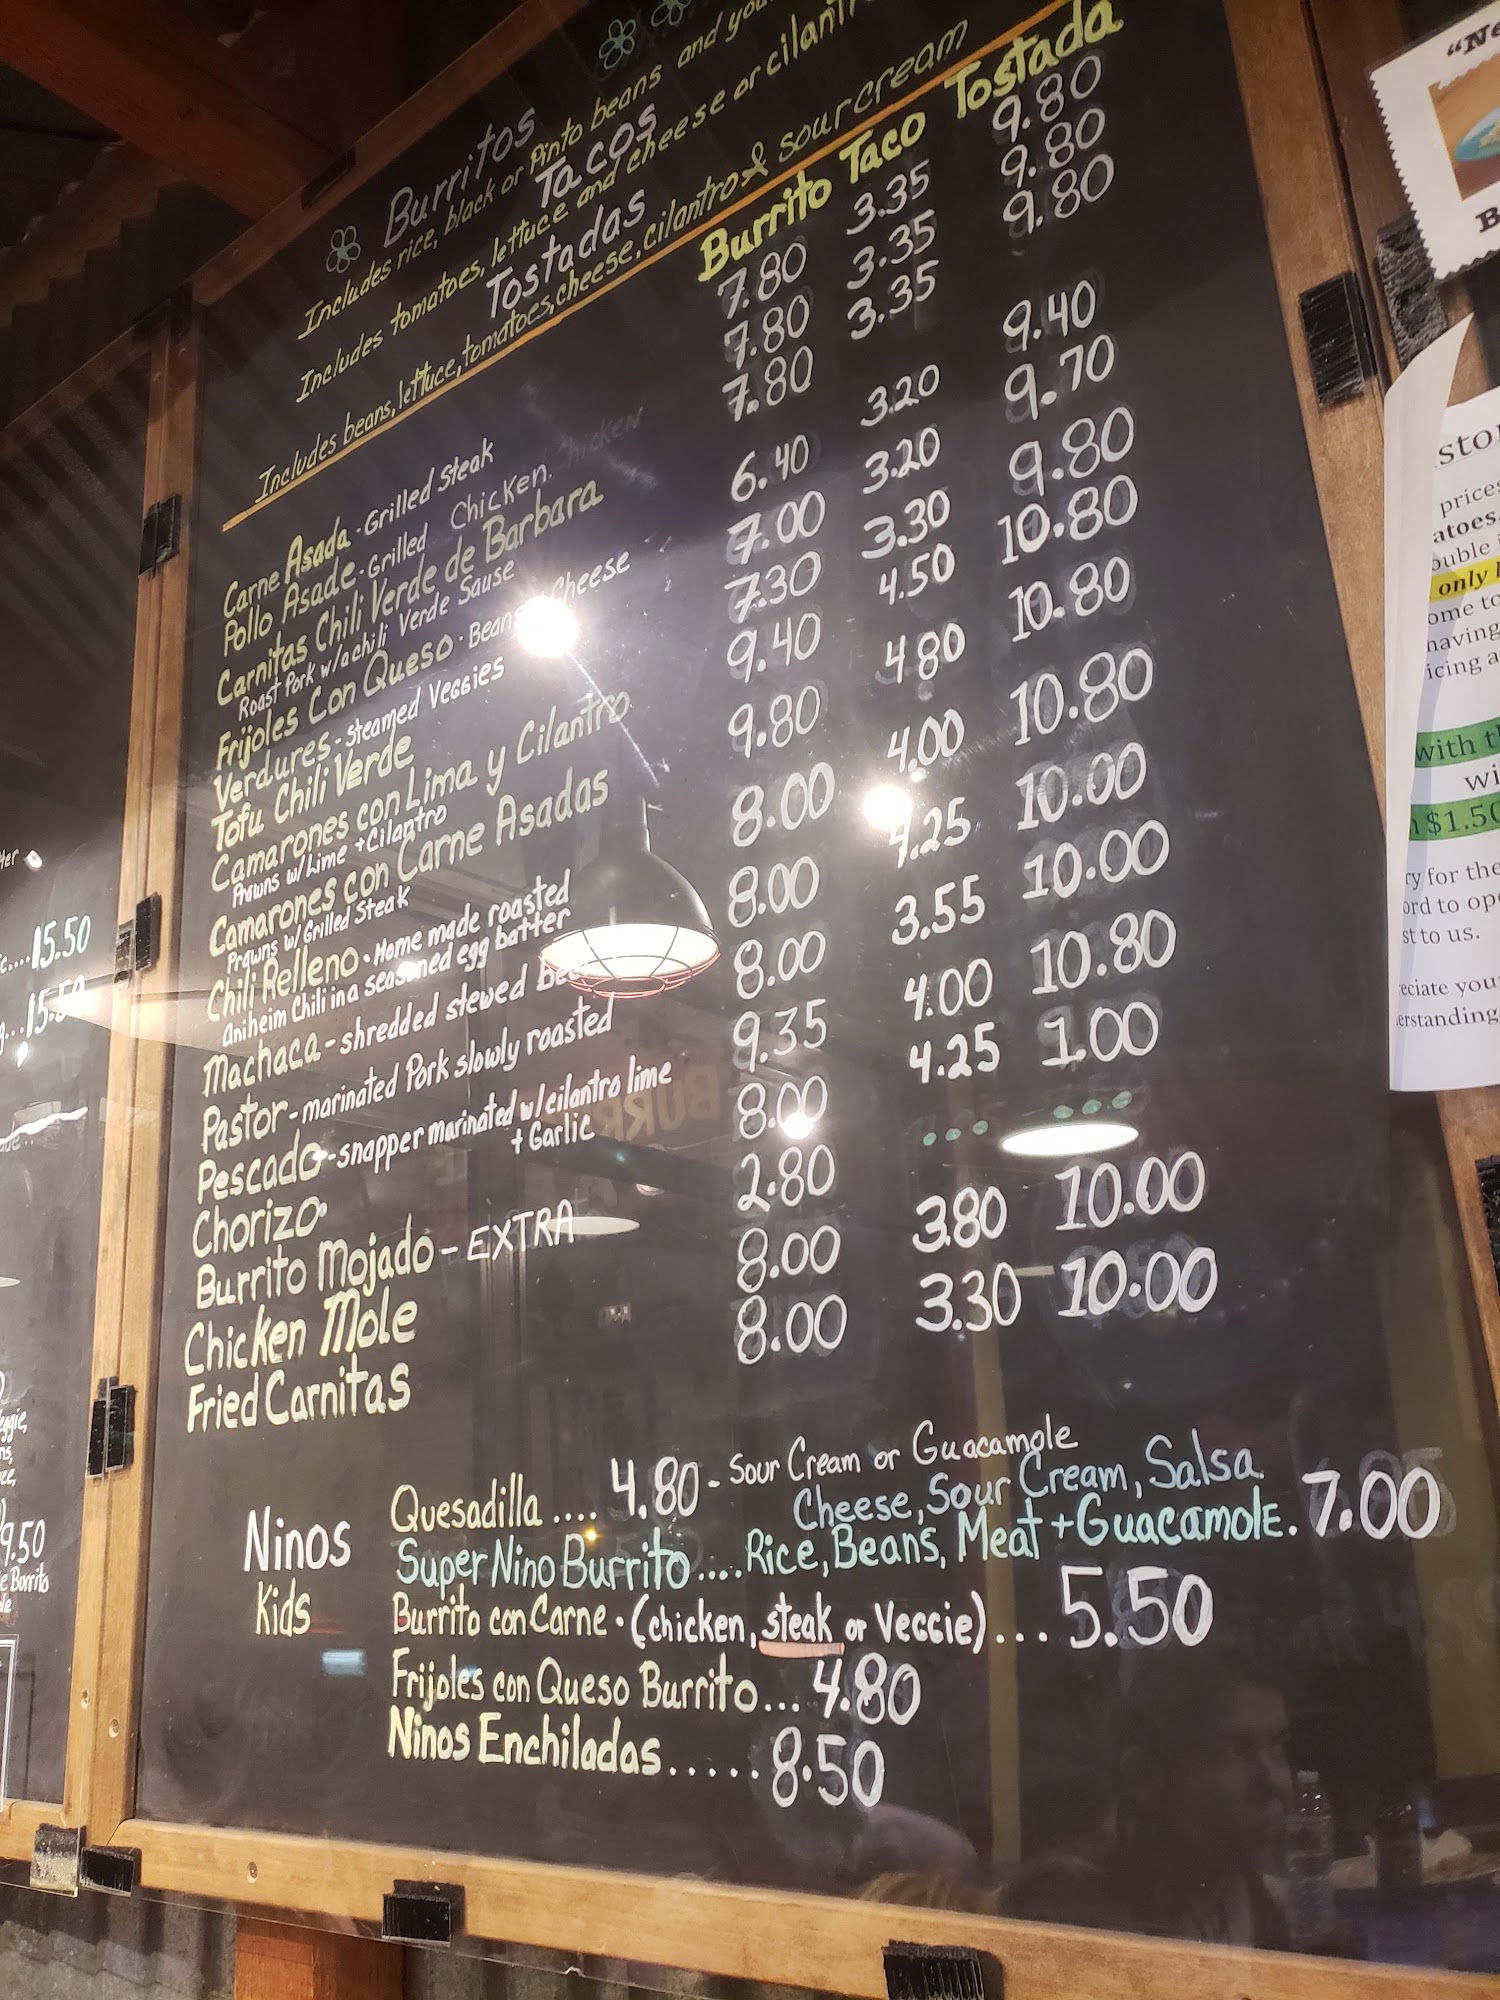 Burritos
Includes rice, black or Pinto beans and
Tacos
Includes tomatoes, lettuce and cheese or
Tostadas
Includes beans, lettuce, tomatoes, cheese, cilantro & sour cream
Burrito Taco Tostada
Carne Asada - Grilled Steak 7.80 3.35 9.80
Pollo Asade - Grilled Chicken. 7.80 3.35 9.80
Carnitas Chili Verde de Barbara 7.80 3.35 9.80
Roast Pork w/a chili Verde Sause
Frijoles Con Queso - Beans Cheese 6.40 3.20 9.40
Verdures - Steamed Veggies 7.00 3.20 9.70
Tofu Chili Verde 7.30 3.30 9.80
Camarones con Lima y Cilantro 9.40 4.50 10.80
Prawns w/ Lime + Cilantro
Camarones con Carne Asadas 9.80 4.80 10.80
Prawns w/ Grilled Steak
Chili Relleno • Home made roasted 8.00 4.00 10.80
Aniheim Chili in a seasoned egg batter
Machaca - shredded stewed Beef 8.00 4.25 10.00
Pastor - marinated Pork slowly roasted 8.00 3.55 10.00
Pescado - snapper marinated w/ cilantro lime 9.35 4.00 10.80
+ Garlic
Chorizo 8.00 4.25 1.00
Burrito Mojado - EXTRA 2.80 ... ....
Chicken Mole 8.00 3.80 10.00
Fried Carnitas 8.00 3.30 10.00
Ninos
Kids
Quesadilla .... 4.80 - Sour Cream or Guacamole
Cheese, Sour Cream, Salsa
Super Nino Burrito .... Rice, Beans, Meat + Guacamole. 7.00
Burrito con Carne • (chicken, steak or Veggie) ... 5.50
Frijoles con Queso Burrito ... 4.80
Ninos Enchiladas ..... 8.50
15.50
15.50
9.50
Burrito
prices
only
having
with
$1.50
for the
to us.